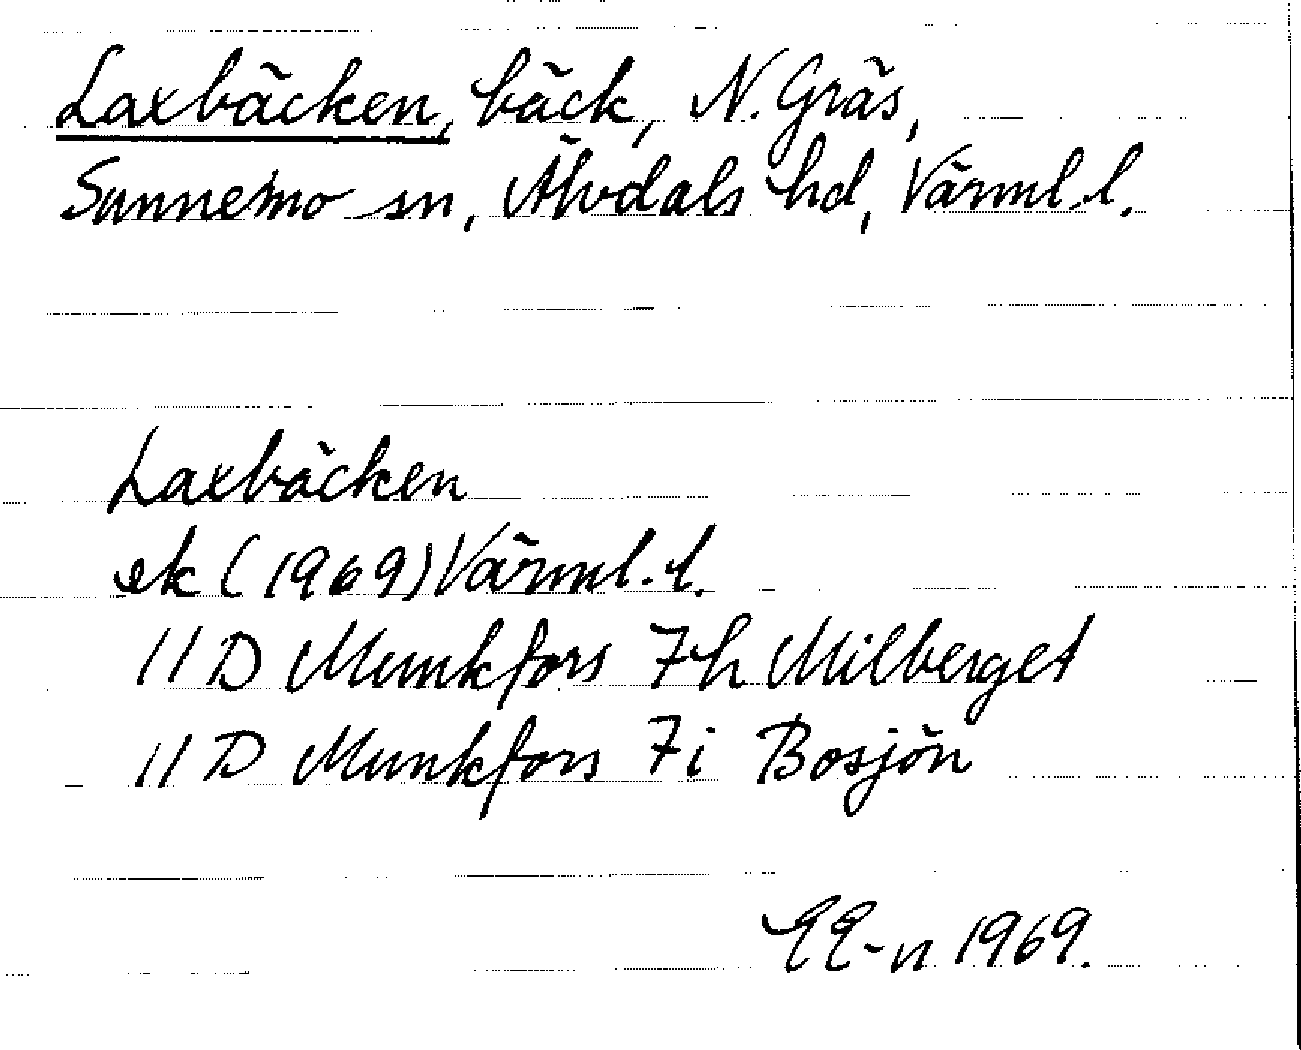 Laxbäcken, bäck, N. Gräs,
Sunnemo sn, Älvdals hd, Värml. l.
Laxbäcken
ek (1969) Värml. l.
11 D Munkfors 7h Milberget
11 D Munkfors 7i Bosjön
EE-n 1969.